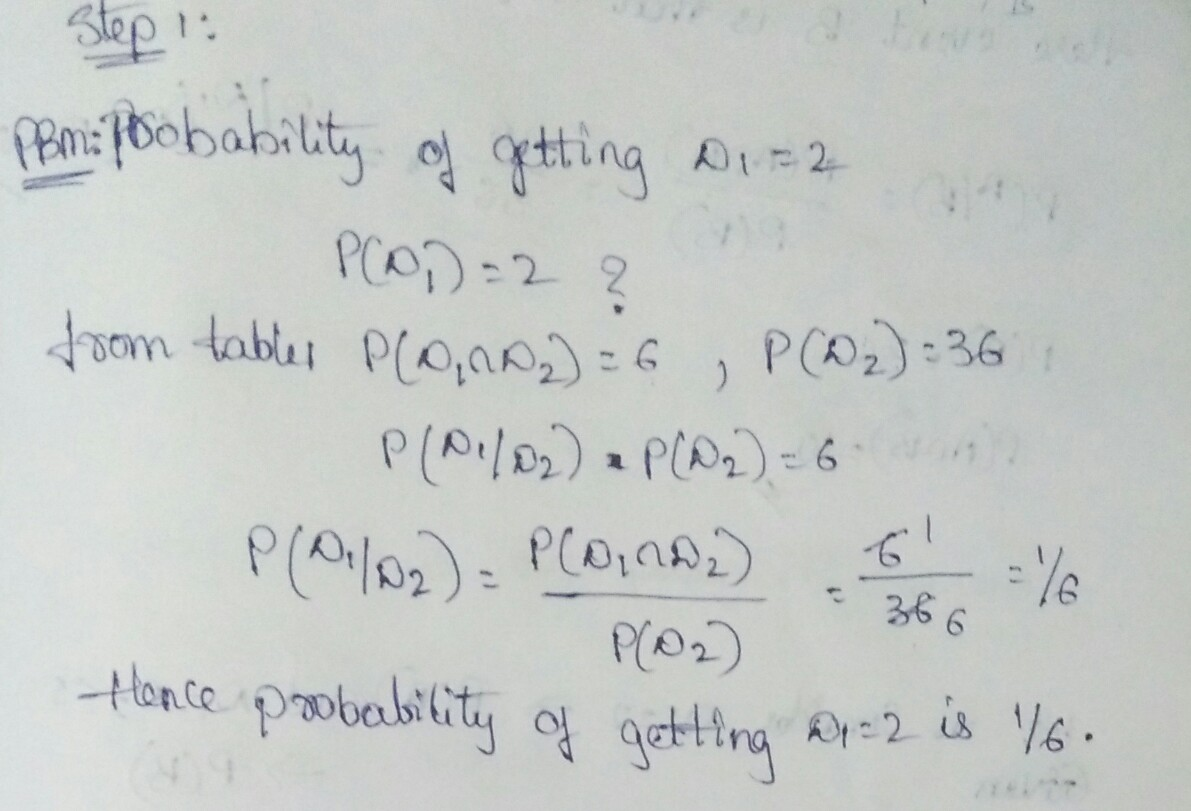 Step 1:
PBM: Probability of getting D₁ = 2
P(D₁) = 2 ?
from table, P(D₁∩D₂) = 6 , P(D₂) = 36
P(D₁/D₂) * P(D₂) = 6
P(D₁/D₂) = P(D₁∩D₂) / P(D₂) = 6 1 / 36 6 = 1/6
Hence probability of getting D₁=2 is 1/6.